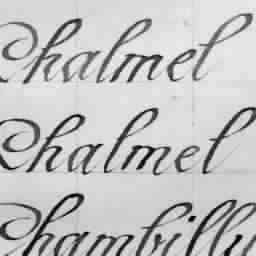 Chalmel
Chalmel
Chambilly